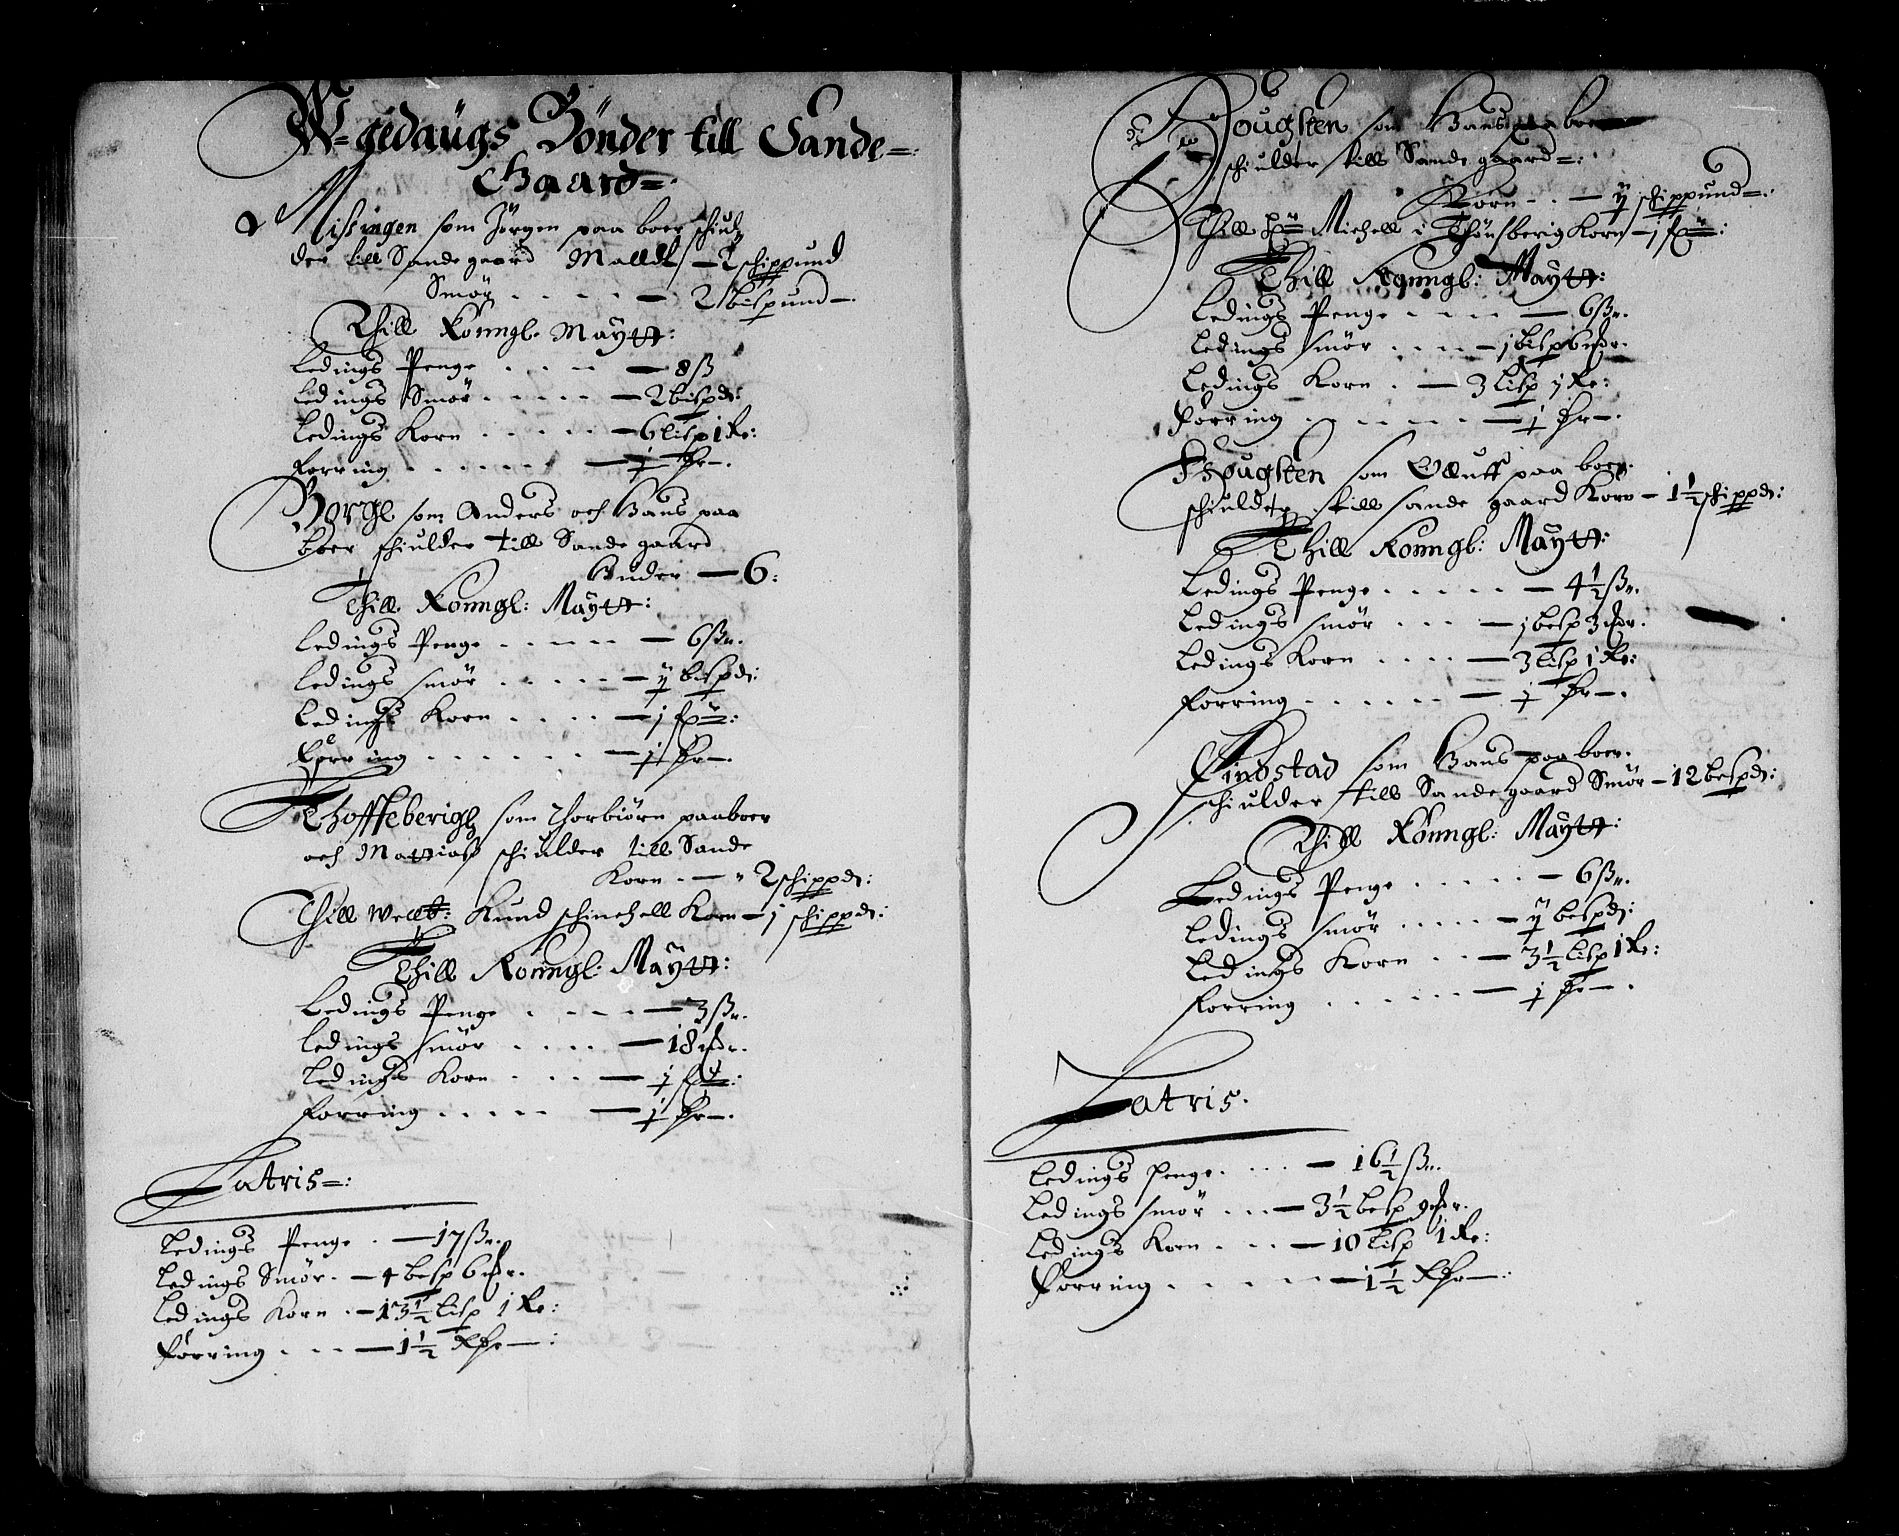 W-gedaugs Bönder till Sande=:
Gaard=:
Missingen som Jörgen paa boer schiul
der till Sande gaard Malldt — 2 schippund
Smör . . . . — 2 bispund—.
Thill Konngl. Maytt:
Ledings Penge . . . . — 8 ß
Ledings Smör . . . . . — 2 bispd:
Ledings Korn . . . . . — 6 lisp 1 Re:
Forring . . . . . . — ½ Dr—.
Borge som Anders och Hans paa
boer schiulder till Sande gaard
Huder — 6:
Thill Konngl: Maytt:
Ledings Penge . . . . . — 6 ß.
Ledings smör . . . . . — ij bispd:
Ledings Korn . . . . — j
Forring . . . . . . — ½ Dr—.
Thoffeberigh som Thorbiörn paaboer
och Mattiass schiulder till Sande
Korn . — 2 schippd:
Thill Knud schinchell Korn — j schippd:
Thill Konngl: Maytt:
Ledings Penge . . . . — 3 ß.
Ledings smör . . . . — 18
Ledings Korn . . . — j
Forring . . . . . — ½ Dr—.
Latris=:
Ledings Penge . — 17 ß.
Ledings Smör . — 4 besp 6
Ledings Korn . — 13½ lisp 1 Re:
Forring . . . — 1½ —:
Hougsten som Hans paa boer
schiulder till Sande gaard=:
Korn . . — ij schippund=:
Thill Michell i Thönsberig Korn — j
Thill Konngl: Maytt:
Ledings Penge . . . . — 6 ß.
Ledings smör . . . . — j bisp 6
Ledings Korn . — 3 lisp j Re:
Forring . . . . . . — ½ Dr—.
Hougsten som Olluff paa boer.
schiulder till sande gaard Korn — 1½ schippd:
Thill Konngl: Maytt:
Ledings Penge . . . . . — 4½ ß.
Ledings smör . . . — j besp 3
Ledings Korn . . . . — 3 lisp 1 Re:
Forring . . . . . . — ½ Dr—.
som Hans paa boer.
schiulder till Sande gaard Smör — 12 bespd:
Thill Konngl: Maytt:
Ledings Penge . . . . . — 6 ß.
Ledings smör . . . . . — ij bespd:
Ledings Korn . . — 3½ lisp 1 Re:
Forring . . . . . . — ½ Dr—.
Latris.
Ledings penge . . . . — 16½ ß.
Ledings smör . . . — 3½ besp 9
Ledings Korn . . . — 10 lisp 1 Re:
Forring . . . . . — 1½ —: